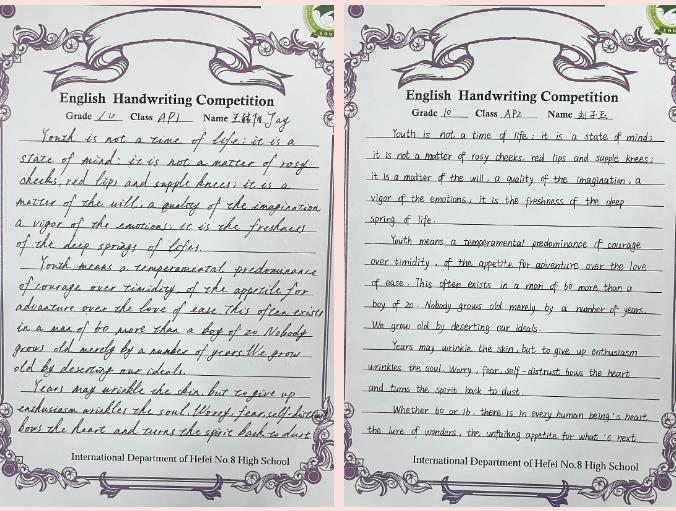 English Handwriting Competition
Grade 10 Class AP1 Name Jay
Youth is not a time of life; it is a
state of mind; it is not a matter of rosy
cheeks, red lips and supple knees; it is a
matter of the will, a quality of the imagination
a vigor of the emotions; it is the freshness
of the deep springs of lifes.
Youth means a temperamental predominance
of courage over timidity, of the appetite for
advanture over the love of ease. This often exists
in a man of 60 more than a boy of 20. Nobody
grows old merely by a number of years. We grow
old by deserting our ideals.
Years may wrinkle the skin, but to give up
enthusiasm wrinkles the soul. Worry, fear, self-distrust
bows the heart and turns the spirit back to dust.
International Department of Hefei No.8 High School
English Handwriting Competition
Grade 10 Class AP2 Name
Youth is not a time of life; it is a state of mind;
it is not a matter of rosy cheeks, red lips and supple knees;
it is a matter of the will, a quality of the imagination, a
vigor of the emotions; it is the freshness of the deep
spring of life.
Youth means a temperamental predominance of courage
over timidity, of the appetite for adventure over the love
of ease. This often exists in a man of 60 more than a
boy of 20. Nobody grows old merely by a number of years.
We grow old by deserting our ideals.
Years may wrinkle the skin, but to give up enthusiasm
wrinkles the soul. Worry, fear, self-distrust bows the heart
and turns the spirit back to dust.
Whether 60 or 16, there is in every human being's heart
the lure of wonders, the unfailing appetite for what's next
International Department of Hefei No.8 High School